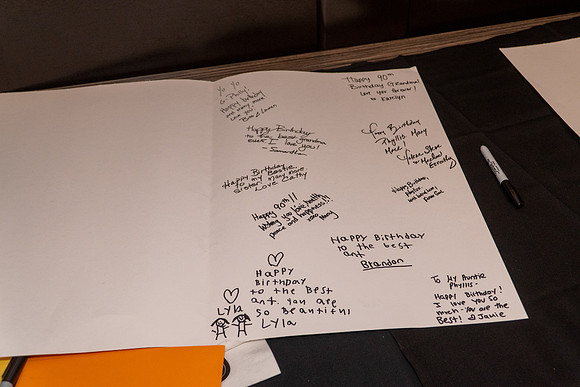 Yo Yo
G-Philly!
Happy birthday
and many more!
Love you!
Happy 90th
Birthday Grandma!
Love you forever!
Katelyn
Happy Birthday
to the best grandma
ever I love you!
- Samantha
Happy Birthday
Phyllis Many
More
Happy Birthday
to my Bestie
Sister Many more
Love Cathy
Happy Birthday,
Phyllis!
Happy 90th!!
Wishing you love, health,
peace and happiness!!
xoxo
Happy Birthday
to the best
ant
Brandon
Happy
Birthday
to the Best
ant. you are
so Beautiful
Lyla
Lyla
To My Auntie
Phyllis-
Happy Birthday!
I love you so
much - You are the
Best! Jamie